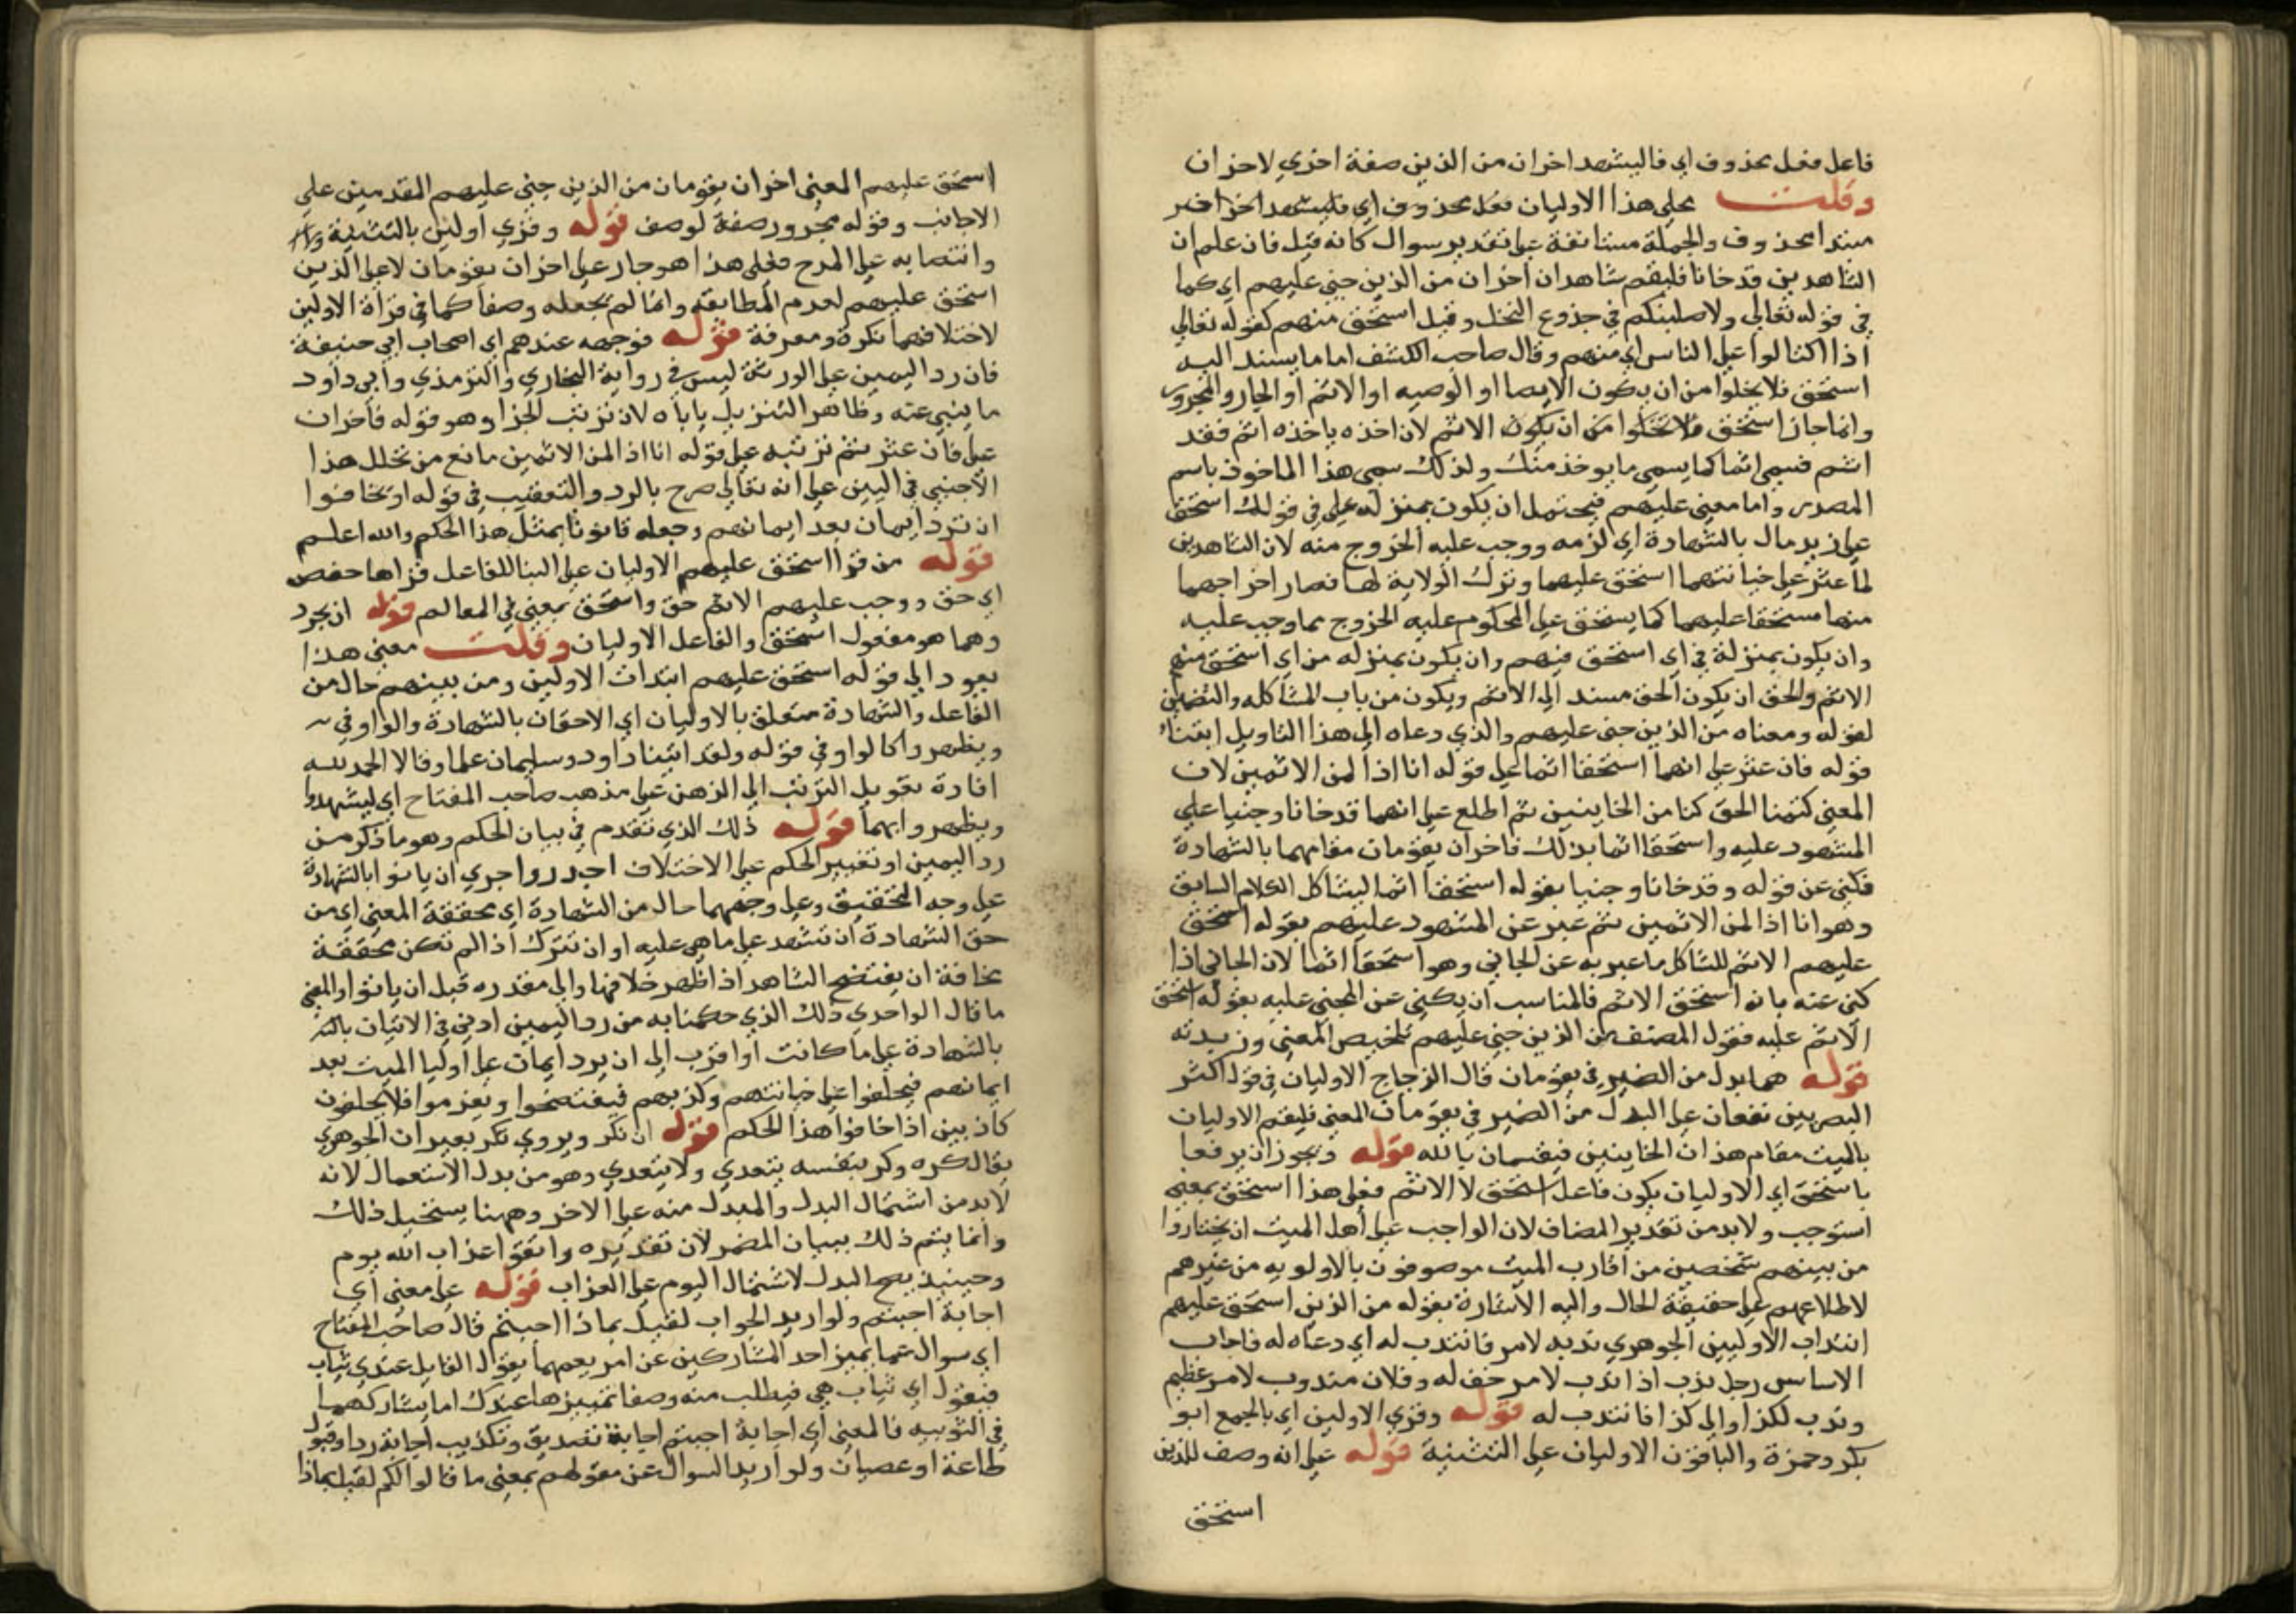 فاعل فعل محذوف اي فاليشهد اخران من الذين صفة اخري لاخران
وقلت على هذا الاوليان فعل محذوف اي فليشهد اخر او خبر
مبتدا محذوف والجملة مستانفة على تقدير سوال كانه قيل فان علم ان
الشاهدين قد خانا فليقم شاهدان اخران من الذين جني عليهم اي كما
في قوله تعالى ولاصلبنكم في جذوع النخل وقيل استحق منهم كقوله تعالى
اذا اكتالوا على الناس اي منهم وقال صاحب الكشف اما ما يسند اليه
استحق فلا يخلوا من ان يكون الايصا او الوصيه او الاثم او الجار والمجرور
وانما جاز استحق فلا تخلوا من ان يكون الاثم لان اخذه باخذه اثم فقد
اثم فسمى اثما كما يسمى ما يوخذ منك ولذلك سمى هذا الماخوذ باسم
المصدر واما معنى عليهم فيحتمل ان يكون بمنزله على في قولك استحق
على زيد مال بالشهادة اي لزمه ووجب عليه الخروج منه لان الشاهدين
لما عثر على خيانتهما استحق عليهما وترك الولاية لها فصار اخراجهما
منها مستحقا عليهما كما يستحق على المحكوم عليه الخروج مما وجب عليه
وان يكون بمنزلة في اي استحق فيهم وان يكون بمنزله من اي استحق منهم
الاثم والحق ان يكون الحق مسند الى الاثم ويكون من باب المشاكله والتضمين
لقوله ومعناه من الذين جنى عليهم والذي دعاه الى هذا التاويل ابتنا
قوله فان عثر على انهما استحقا اثما على قوله انا اذا لمن الاثمين لان
المعني كتمنا الحق كنا من الخاينين ثم اطلع على انهما قد خانا وجنيا على
المشهود عليه واستحقا اثما بذلك فاخران يقومان مقامهما بالشهادة
فكنى عن قوله وقد خانا وجنيا بقوله استحقا اثما ليشاكل الكلام السابق
وهو انا اذا لمن الاثمين ثم عبر عن المشهود عليهم بقوله استحق
عليهم الاثم للتشاكل ما عبر به عن الجاني وهو استحقا اثما لان الجاني اذا
كنى عنه بانه استحق الاثم فالمناسب ان يكنى عن المجني عليه بقوله استحق
الاثم عليه فقول المصنف من الذين جني عليهم تلخيص المعنى وزبدته
قوله هما بدل من الضمير في يقومان قال الزجاج الاوليان في قول اكثر
البصريين يقعان على البدل من الضمير في يقومان المعنى فليقم الاوليان
بالميت مقام هذان الخاينين فيقسمان بالله قوله ويجوز ان يرفعا
باستحق اي الاوليان يكون فاعل استحق لا الاثم فعلى هذا استحق بمعنى
استوجب ولا بد من تقدير المضاف لان الواجب على اهل الميت ان يختاروا
من بينهم شخصين من اقارب الميت موصوفون بالاولويه من غيرهم
لاطلاعهم على حقيقة الحال واليه الاشارة بقوله من الذين استحق عليهم
انتداب الاوليين الجوهري ندبه لامر فانتدب له اي دعاه له فاجاب
الاساس رجل ندب اذا ندب لامر خف له وفلان مندوب لامر عظيم
وندب لكذا والى كذا فانتدب له قوله وقري الاولين اي بالجمع ابو
بكر وحمزة والباقون الاوليان على التثنية قوله على انه وصف للذين
استحق
استحق عليهم المعنى اخران يقومان من الذين جني عليهم المقدمين على
الاجانب وقوله مجرور صفة لوصف قوله وقري اولين بالتثنية
وانتصابه على المدح فعلى هذا هو جار على اخران يقومان لا على الذين
استحق عليهم لعدم المطابقه وانما لم يجعله وصفا كما في قراة الاولين
لاختلافهما نكرة ومعرفة قوله فوجهه عندهم اي اصحاب ابي حنيفة
فان رد اليمين على الورثة ليس في رواية البخاري والترمذي وابي داود
ما ينبي عنه وظاهر التنزيل ياباه لان ترتب الجزا وهو قوله فاخران
على فان عثر ثم ترتبه على قوله انا اذا لمن الاثمين مانع من تخلل هذا
الاجنبي في البين على انه تعالى صرح بالرد والتعقيب في قوله او يخافوا
ان ترد ايمان بعد ايمانهم وجعله قانونا بمثل هذا الحكم والله اعلم
قوله من قرا استحق عليهم الاوليان على البنا للفاعل قراها حفص
اي حق ووجب عليهم الاثم حق واستحق بمعنى في المعالم قوله ان يجرد
وهما هو مفعول استحق والفاعل الاوليان وقلت معنى هذا
يعود الى قوله استحق عليهم ابتداث الاولين ومن بينهم حال من
الفاعل والشهادة متعلق بالاوليان اي الاحقان بالشهادة والواو في
ويظهروا كالواو في قوله ولقد اتينا داود وسليمان علما وقالا الحمد لله
افادة تقويل الترتب الى الذهن على مذهب صاحب المفتاح اي ليشهدوا
ويظهروا بهما قوله ذلك الذي تقدم في بيان الحكم وهو ما ذكر من
رد اليمين او تغيير الحكم على الاختلاف اجدر واجري ان ياتوا بالشهادة
على وجه التحقيق وعلى وجهها حال من الشهادة اي محققة المعنى اي من
حق الشهادة ان تشهد على ما هي عليه او ان تترك اذا لم تكن محققة
مخافة ان يفتضح الشاهد اذا ظهر خلافها والى مقدره قبل ان ياتوا والمعنى
ما قال الواحدي ذلك الذي حكمنا به من رد اليمين ادنى في الاتيان
بالشهادة على ما كانت او اقرب الى ان يرد ايمان على اوليا الميت بعد
ايمانهم فيحلفوا على خيانتهم وكذبهم فيفتضحوا ويغرموا فلا يحلفون
كاذبين اذا خافوا هذا الحكم قوله ان نكر ويروي تكر بعير ان الجوهري
يقال كره وكر بنفسه يتعدي ولا يتعدي وهو من بدل الاشتعمال لانه
لا بد من اشتمال البدل والمبدل منه على الاخر وههنا يستحيل ذلك
وانما يتم ذلك ببيان المضمر لان تقديره واتقوا عذاب الله يوم
وحينيذ يصح البدل لاشتمال اليوم على العذاب قوله على معنى اي
اجابة اجبتم ولو اريد الجواب لقيل بماذا اجبتم قال صاحب المفتاح
اي سوال عما يميز احد المشاركين عن امر يعمهما يقول القايل عندي ثياب
فيقول اي ثياب هي فيطلب منه وصفا تمييزها عندك اما يشاركهما
في الثوبيه فالمعنى اي اجابة اجبتم اجابة تصديق وتكذيب اجابة رد او قبول
طاعة او عصيان ولو اريد السوال عن مقولهم بمعنى ما قالوا لكم لقيل بماذا